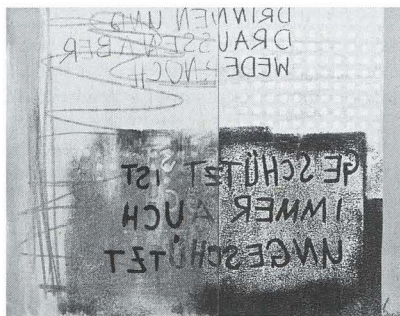 DRINNEN UND
DRAUSSEN ABER
WEDER NOCH
GESCHÜTZT IST
IMMER AUCH
UNGESCHÜTZT